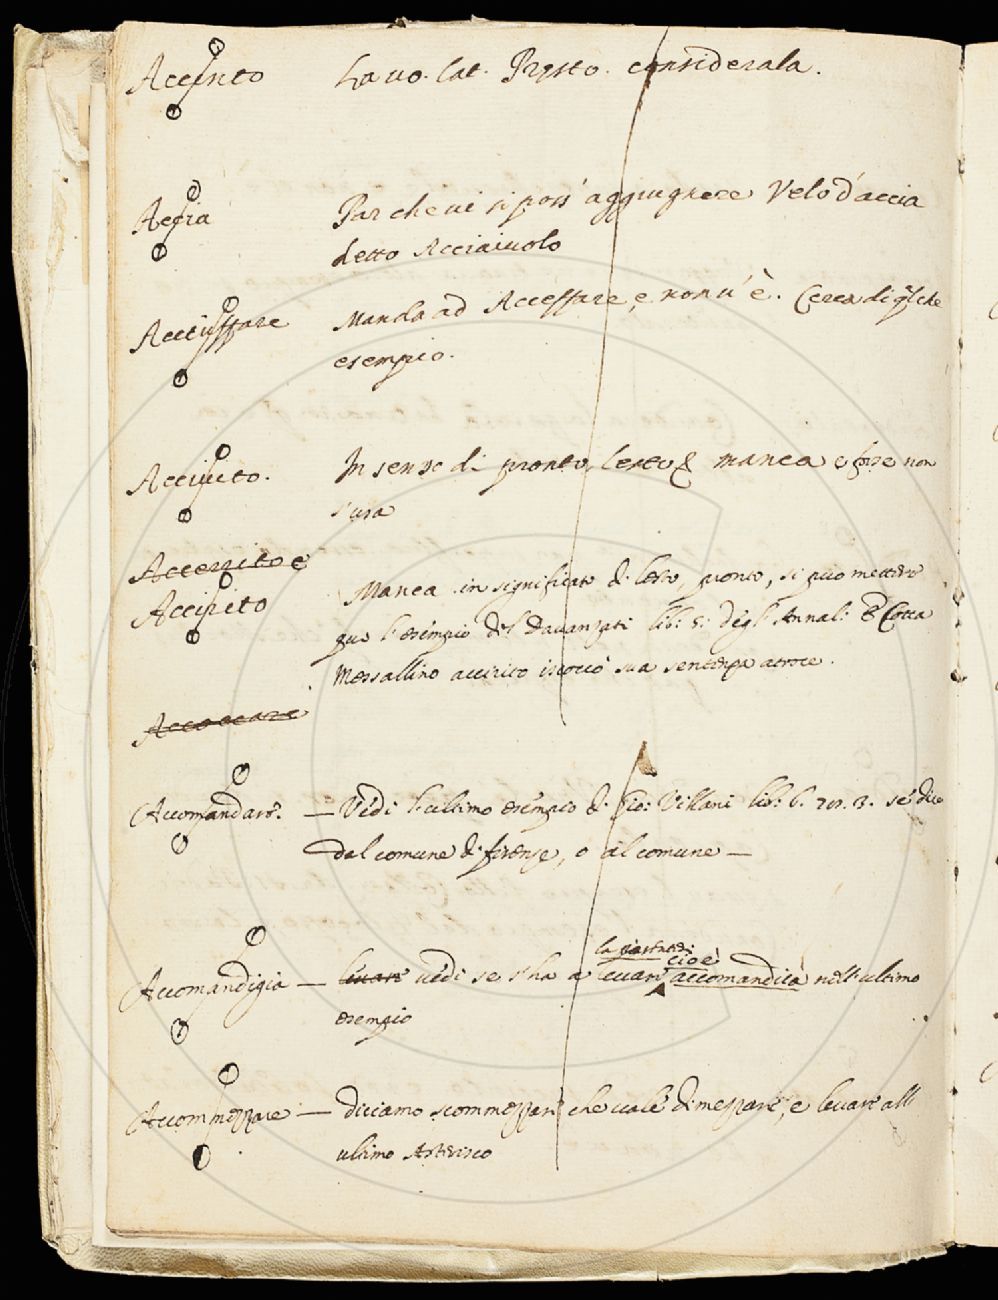 Accinto La uo. lat. Presto. considerala.
Accia Par che ui si poss' aggiugnere Velo d'accia
detto Acciaiuolo
Acciuffare Manda ad Acceffare, e non u' è. Cerca di qlche
esempio.
Acciuito. In senso di pronto, lesto &. manca e forse non
s'usa
Accerrito e
Accirito Manca in significato di lesto, pronto, si può mettere
qua l'esempio del Dauanzati lib: 5: degl' Annal: E Cotta
Messallino accirito iscoccò sua sentenza atroce.
Accoccare
Accomandare. — Vedi l'ultimo esempio di Gio: Villani lib: 6. se dice
dal comune di firenze, o al comune —
la cioè
Accomandigia — leuare uedi se s'ha a leuare accomandita nell'ultimo
esempio
Accommezzare — diciamo scommezzare che uale dimezzare, e leuare all'
ultimo Asterisco